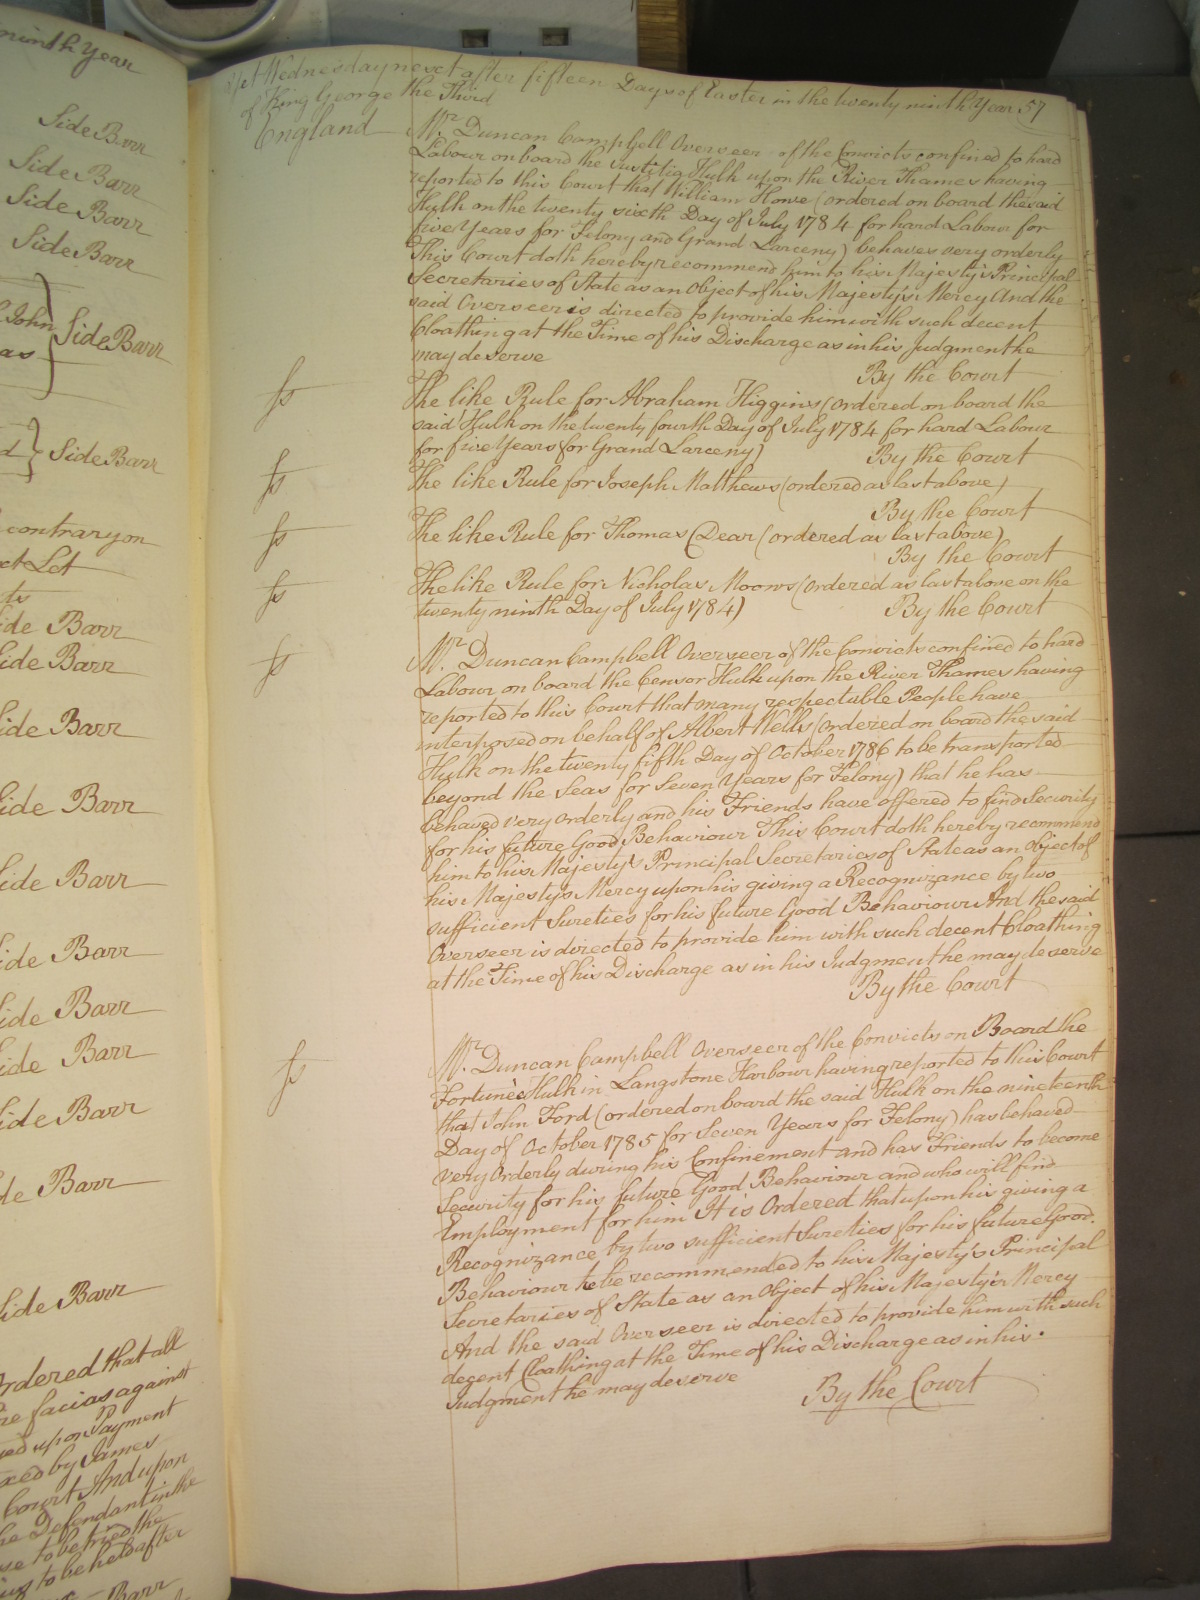 ninth Year
Side Barr
Side Barr
Side Barr
Side Barr
John
as
Side Barr
Side Barr
contrary on
Let
Side Barr
Side Barr
Side Barr
Side Barr
Side Barr
Side Barr
Side Barr
Side Barr
Side Barr
Side Barr
Side Barr
Ordered that all
facias against
upon Payment
by James
Court And upon
the Defendant in the
to be tried the
to be held after
Barr
Yet Wednesday next after fifteen Days of Easter in the twenty ninth Year 57
of King George the Third
England
Mr. Duncan Campbell Overseer of the Convicts confined to hard
Labour on board the Justitia Hulk upon the River Thames having
reported to this Court that William Howe (ordered on board the said
Hulk on the twenty sixth Day of July 1784 for hard Labour for
five Years for Felony and Grand Larceny) behaves very orderly
This Court doth hereby recommend him to his Majesty's Principal
Secretaries of State as an Object of his Majesty's Mercy And the
said Overseer is directed to provide him with such decent
Cloathing at the Time of his Discharge as in his Judgment he
may deserve
By the Court
ss
The like Rule for Abraham Higgins (ordered on board the
said Hulk on the twenty fourth Day of July 1784 for hard Labour
for five Years for Grand Larceny)
By the Court
ss
The like Rule for Joseph Matthews (ordered as last above)
By the Court
ss
The like Rule for Thomas Dear (ordered as last above)
By the Court
ss
The like Rule for Nicholas Moows (ordered as last above on the
twenty ninth Day of July 1784)
By the Court
ss
Mr. Duncan Campbell Overseer of the Convicts confined to hard
Labour on board the Censor Hulk upon the River Thames having
reported to this Court that many respectable People have
interposed on behalf of Albert Wells (ordered on board the said
Hulk on the twenty fifth Day of October 1786 to be transported
beyond the Seas for Seven Years for Felony) that he has
behaved very orderly and his Friends have offered to find Security
for his future Good Behaviour This Court doth hereby recommend
him to his Majesty's Principal Secretaries of State as an Object of
his Majesty's Mercy upon his giving a Recognizance by two
sufficient Sureties for his future Good Behaviour And the said
Overseer is directed to provide him with such decent Cloathing
at the Time of his Discharge as in his Judgment he may deserve
By the Court
ss
Mr. Duncan Campbell Overseer of the Convicts on Board the
Fortunèe Hulk in Langstone Harbour having reported to this Court
that John Ford (ordered on board the said Hulk on the nineteenth
Day of October 1785 for Seven Years for Felony) has behaved
very Orderly during his Confinement and has Friends to become
Security for his future Good Behaviour and who will find
Employment for him It is Ordered that upon his giving a
Recognizance by two sufficient Sureties for his future Good
Behaviour he be recommended to his Majesty's Principal
Secretaries of State as an Object of his Majesty's Mercy
And the said Overseer is directed to provide him with such
decent Cloathing at the Time of his Discharge as in his
Judgment he may deserve
By the Court